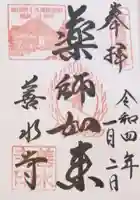 奉拝
令和四年
月二日
薬師如来
善水寺